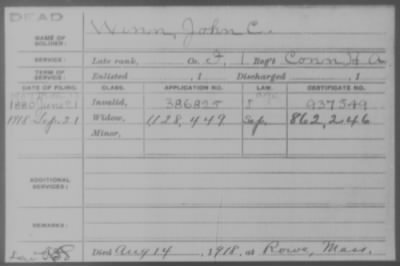 DEAD
NAME OF SOLDIER: Winn, John C.
SERVICE: Late rank, Co. I, 1 Reg't Conn H A
TERM OF SERVICE: Enlisted , 1 Discharged , 1
DATE OF FILING. CLASS. APPLICATION NO. LAW. CERTIFICATE NO.
1880 June 21 Invalid, 386825 937549
1918 Sep. 21 Widow, 1128,449 Sep. 862,246
Minor,
ADDITIONAL SERVICES:
REMARKS:
Died Aug 14, 1918, at Rowe, Mass.